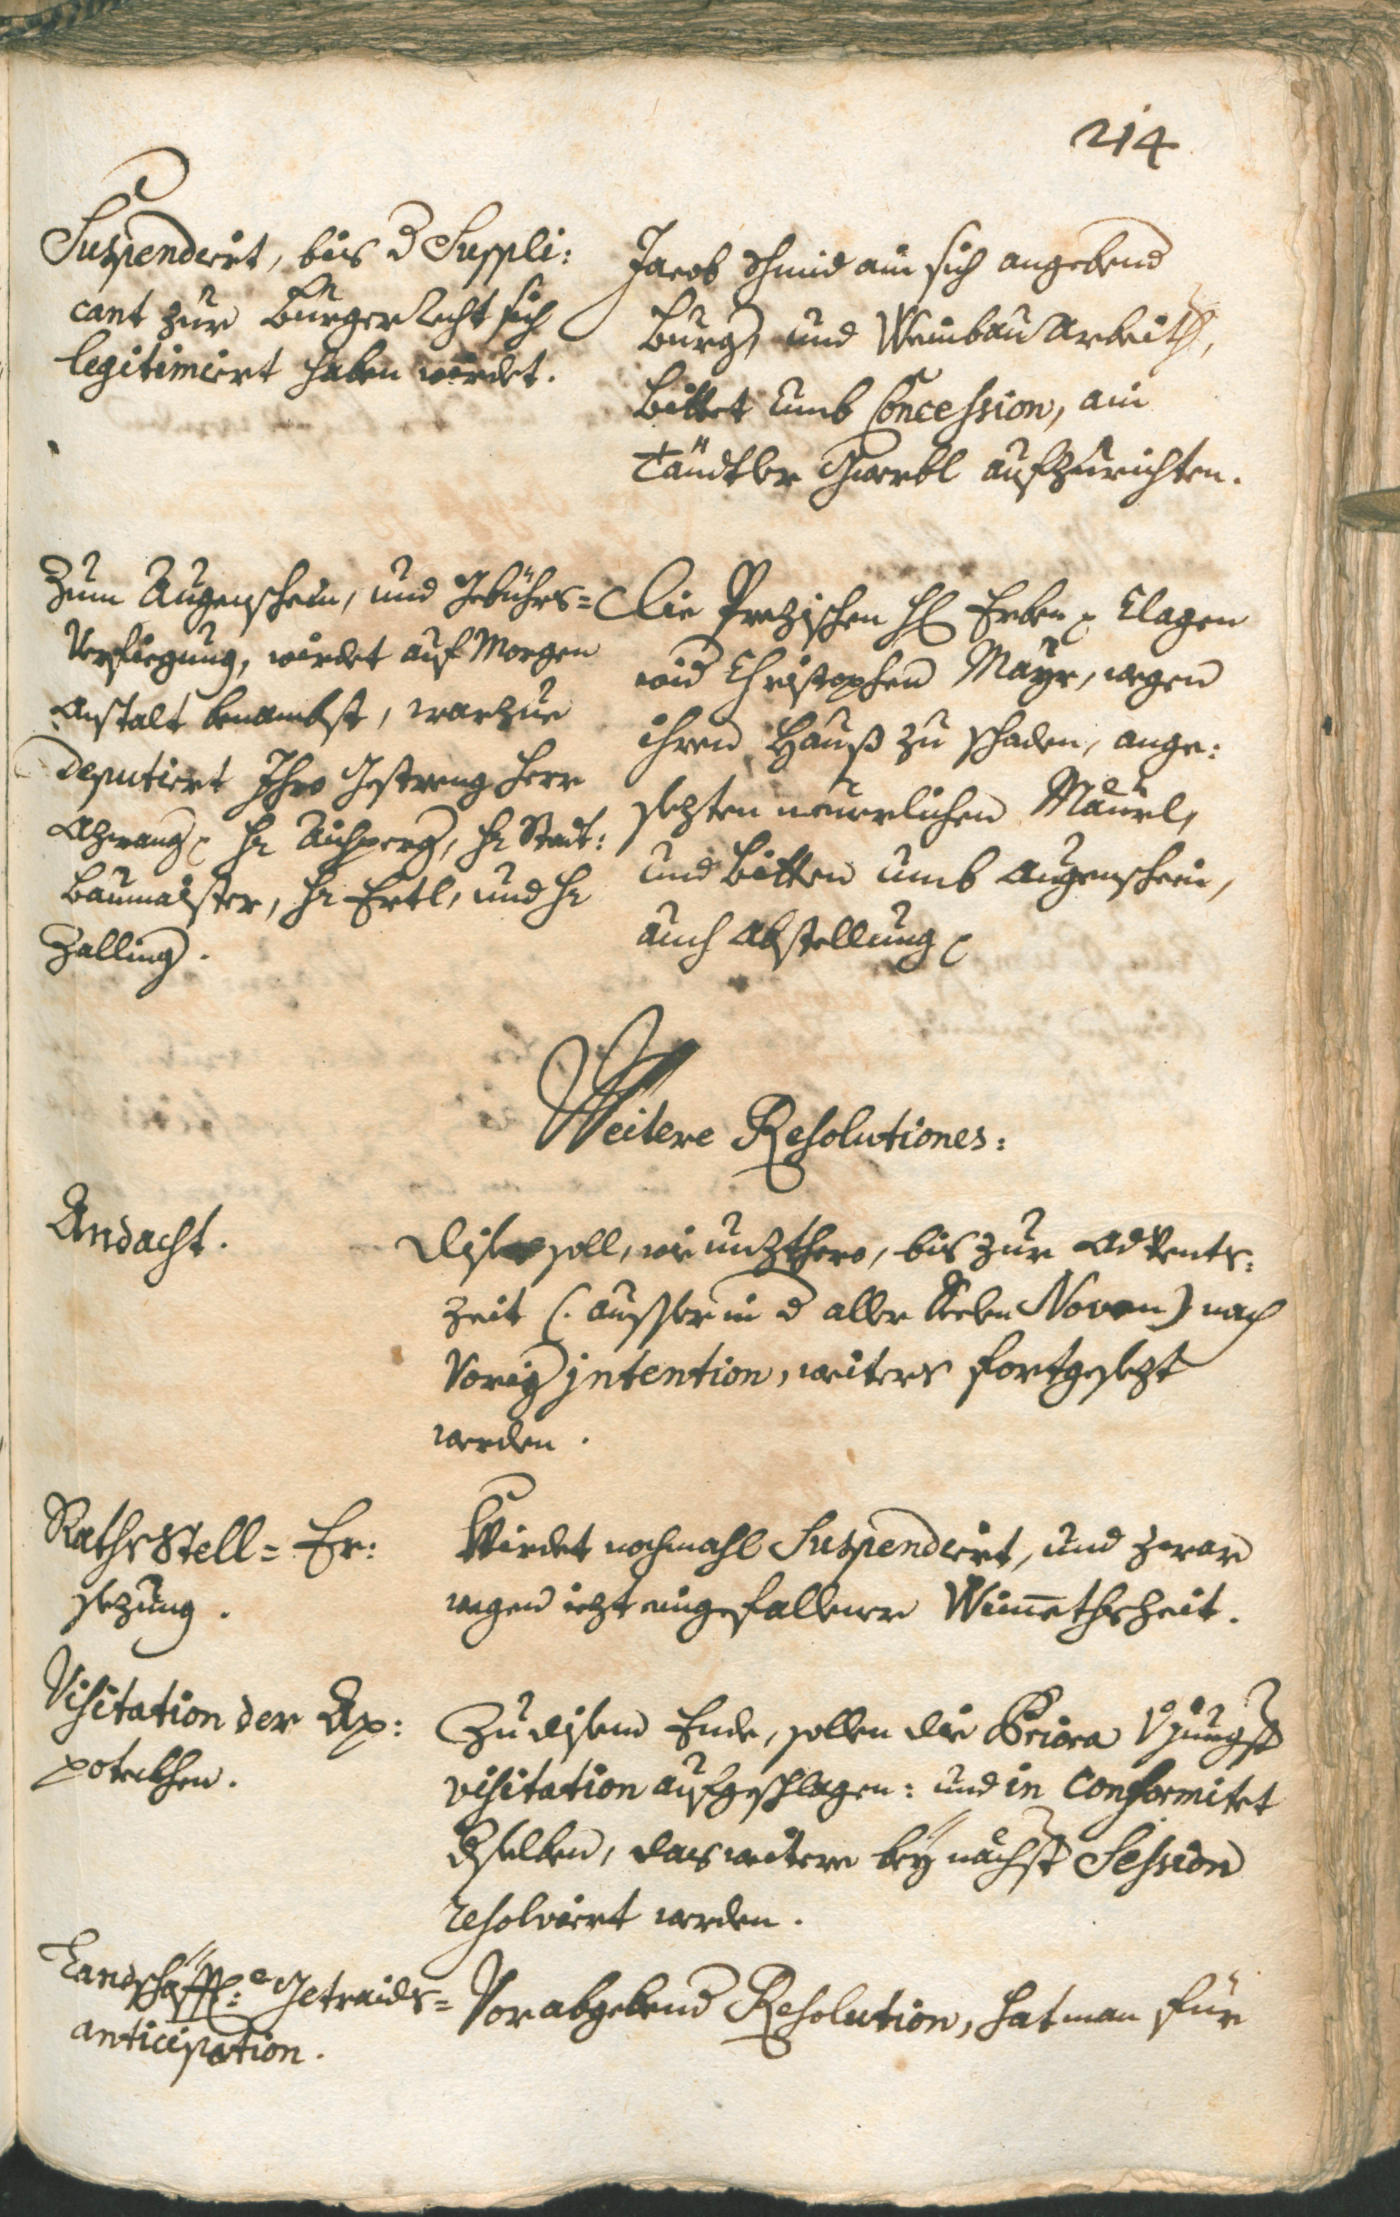 214
Suspendiert, bis d Suppli:
cant zur Burgerlecht sich
legitimiert haben würdet.
Jacob Schmid ain sich angebend
Burg, und Weinbau Arbeith,
bittet umb Concession, ain
Tändtler Gwerbl aufzurichten.
Zum Augenschein, und Gebührs=
Verfüegung, wirdet auf Morgen
Anstalt benambst, warzue
deputiert Ihro Gestreng Herr
Azwang, H: Aichperg, H: Statt:
Baumaister, H: Ertl, und H:
Zalling.
Die Prezischen H: Erben clagen
wid Christophen Mayr, wegen
ihren Hauß zu schaden, ange:
sezten neuerlichen Mäurl,
und bitten umb Augenschein,
auch Abstellung
Weitere Resolutiones:
Andacht.
Dise soll, wie unzthero, bis zur Advents:
zeit (: ausser in d aller Seelen Noven) nach
vorig intention, weiters fortgesezt
werden.
RathsStell= Er:
sezung.
Wirdet nochmahl Suspendiert, und zwar
wegen iezt eingefallener Wim̄ethszeit.
Visitation der Ap:
poteckhen.
Zu disem Ende, sollen die Priora jüngst
visitation aufgeschlagen: und in conformitet
dselben, das weitere bey nächst Session
resolviert werden.
Landschäfftl: Getraids=
anticipation.
Vorabgebend Resolution, hat man für